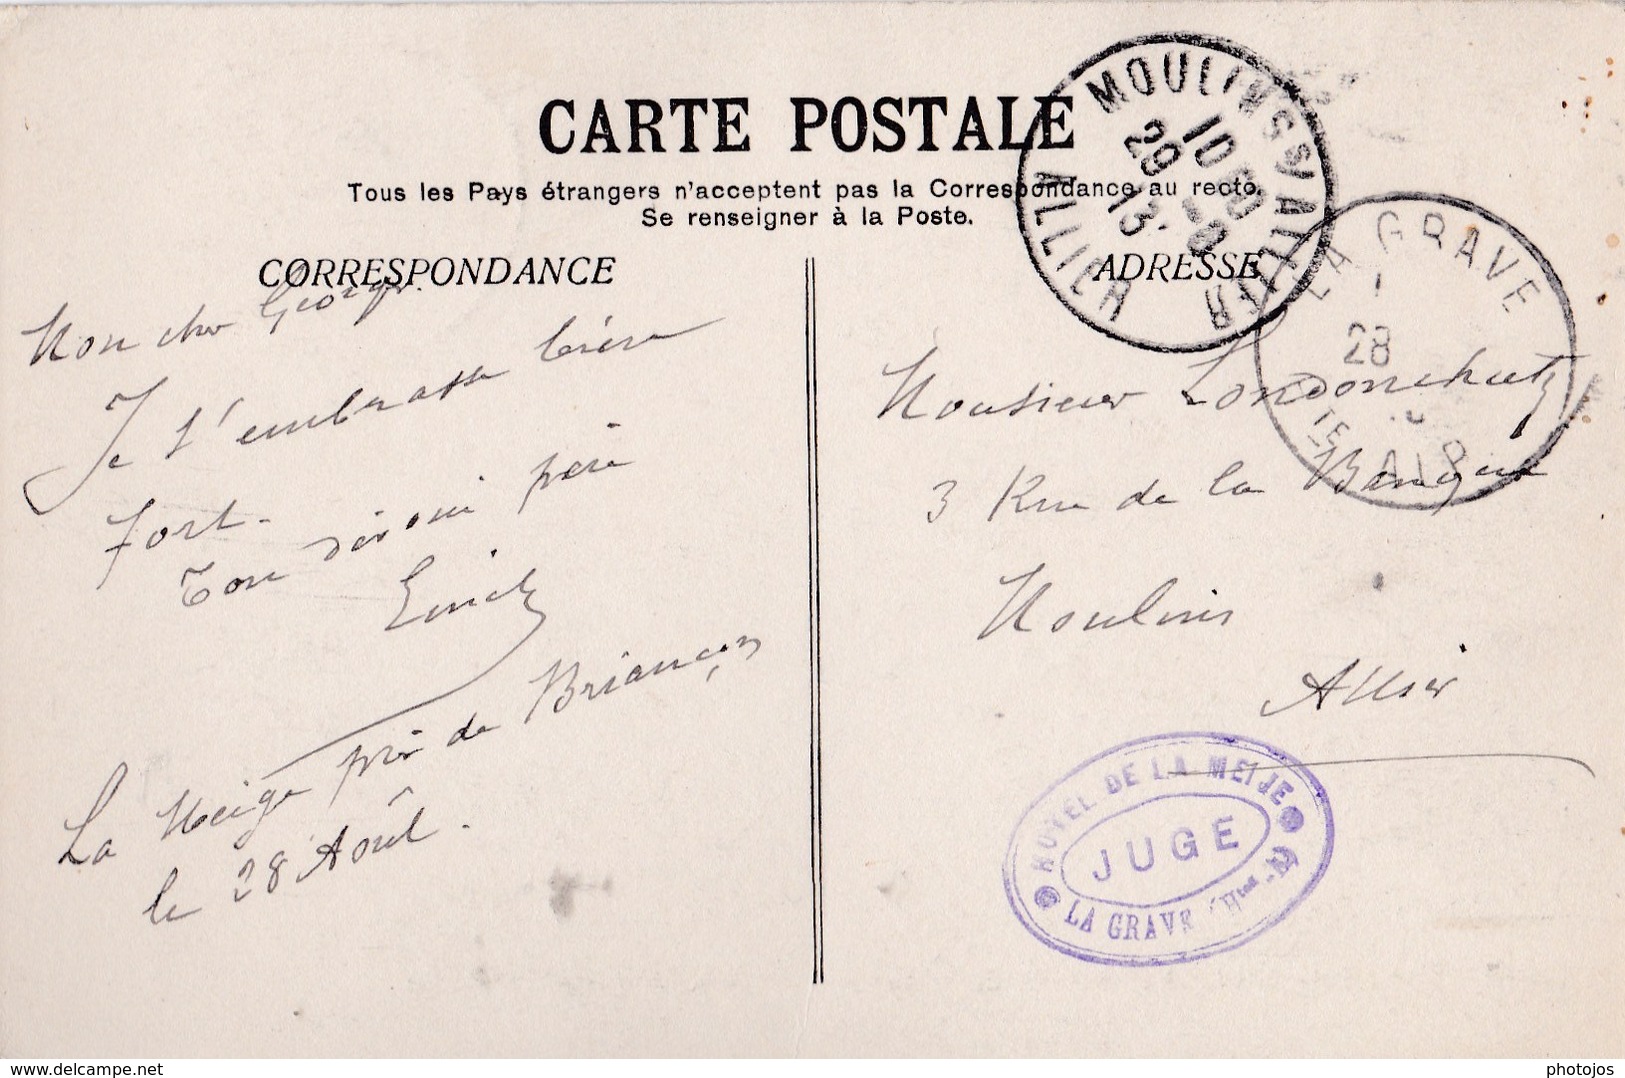 CARTE POSTALE
Tous les Pays étrangers n'acceptent pas la Correspondance au recto.
Se renseigner à la Poste.
CORRESPONDANCE
Mon cher Georges
Je t'embrasse bien
fort.
Ton père
La près de Briançon
le 28 Août.
ADRESSE
Monsieur
3 Rue de la Banque
Moulins
Allier
MOULINS S/ ALLIER
10
29
13
ALLIER
LA GRAVE
28
HTES ALP
HOTEL DE LA MEIJE
JUGE
LA GRAVE (Htes-A)
www.delcampe.net
photojos